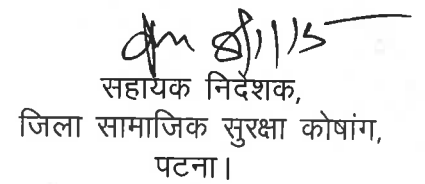 8/1/15
सहायक निदेशक,
जिला सामाजिक सुरक्षा कोषांग,
पटना।